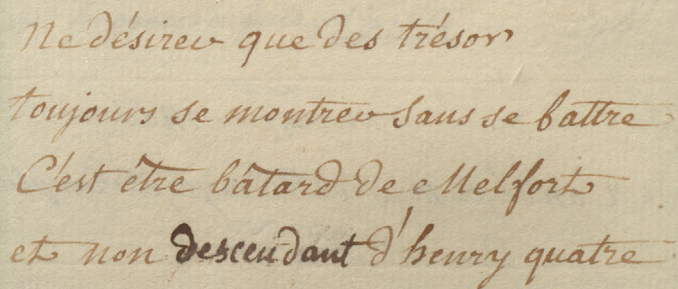 Ne désirer que des trésor
toujours se montrer sans se battre
C'est être bâtard de Melfort
et non descendant d'henry quatre